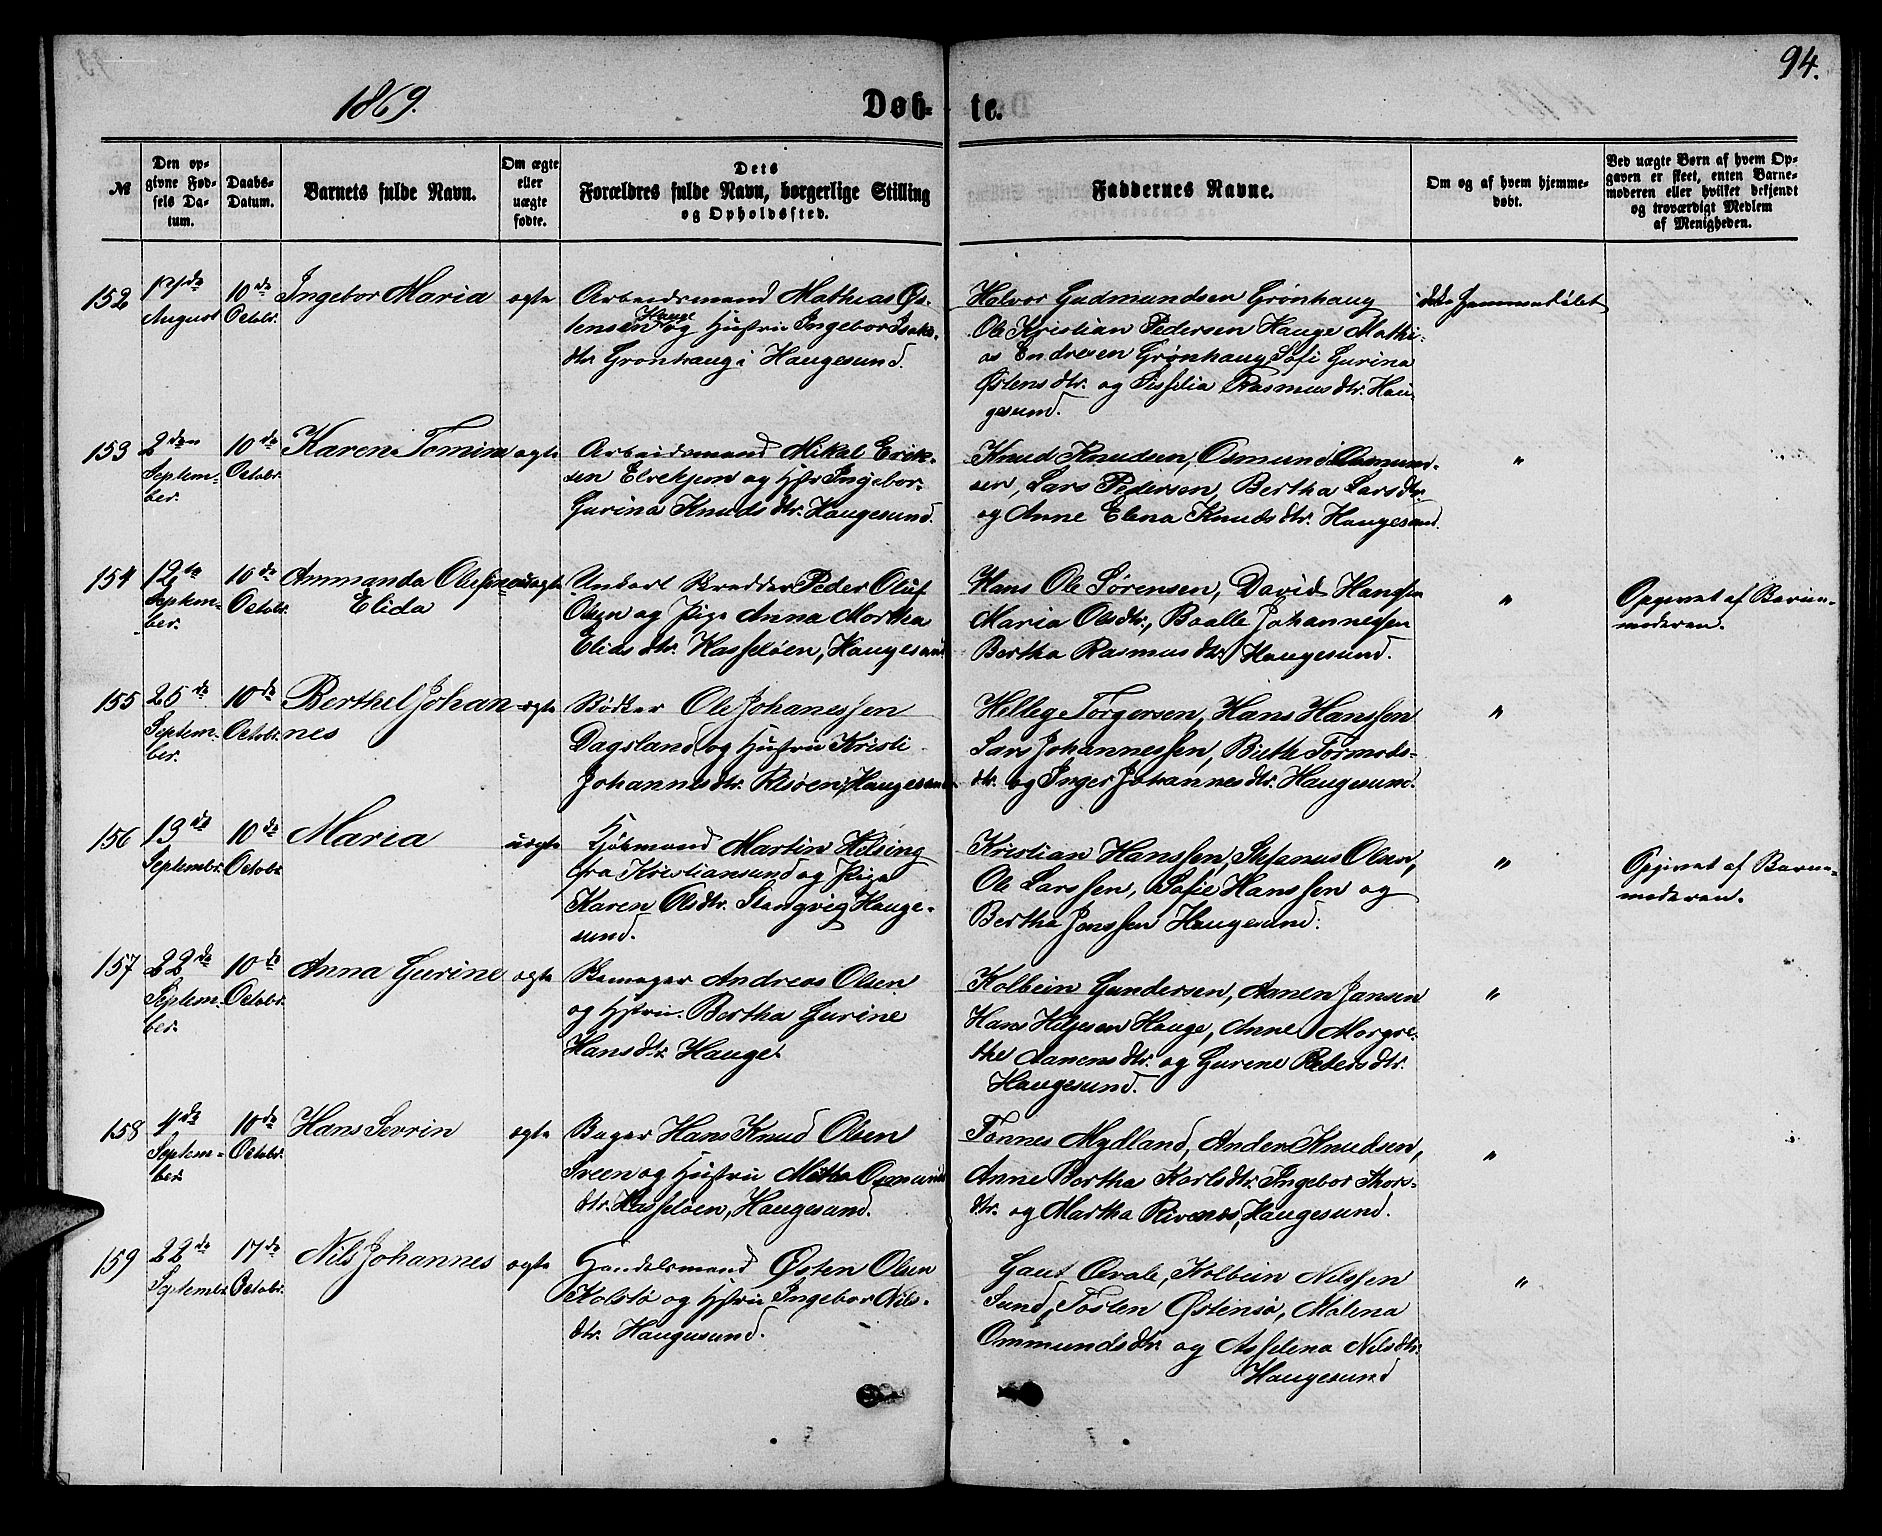 94.
1869.
Døb-te.
№
Den op-
givne Fød-
sels Da-
tum.
Daabs-
Datum.
Barnets fulde Navn.
Om ægte
eller
uægte
fødte.
Dets
Forældres fulde Navn, borgerlige Stilling
og Opholdssted.
Faddernes Navne.
Om og af hvem hjemme-
døbt.
Ved uægte Børn af hvem Op-
gaven er skeet, enten Barne-
moderen eller hvilket bekjendt
og troværdigt Medlem
af Menigheden.
152
August
10de
Octobr.
Ingebor Maria
ægte
Arbeidsmand Mathias Øs-
tensen Hauge og Hustru Ingebor Isaks-
dtr. Grønhaug i Haugesund.
Halvor Gudmundsen Grønhaug
Ole Kristian Pedersen Hauge Mathi-
as Endresen Grønhaug Sofi Gurina
Østensdtr. og Sissilia Rasmusdtr. Hau-
gesund.
153
2den
Septem-
ber.
10de
Octobr.
Karen Tomine
ægte
Arbeidsmand Mikal Erik-
sen og Hstr Ingebor-
Gurina Knudsdtr. Haugesund.
Knud Knudsen, Osmund Osmun-
sen, Lars Pedersen, Bertha Larsdtr.
og Anne Elena Knudsdtr. Haugesund.
"
154
12te
Septem-
ber.
10de
Octobr.
Ammanda
Elida
uægte
Unkarl Skredder Peder Oluf
Olsen og Pige Anna Marthea
Eliasdtr. Hasseløen, Haugesund
Hans Ole Sørensen, David Hansen
Maria Olsdtr., Baalle Johannessen
Bertha Rasmusdtr. Haugesund.
"
Opgivet af Barne-
moderen.
155
25de
Septem-
ber.
10de
Octobr.
Berthel Johan-
nes
ægte
Bødker Ole Johanessen
Dagsland og Hustru Kristi
Johannesdtr. Risøen, Haugesund
Helleg Torgersen, Hans Hanssen
Lars Johannessen, Birthe Tormods-
dtr. og Inger Johannesdtr. Haugesund.
"
156
13de
Septembr.
10de
Octobr.
Maria
uægte
Kjøbmand Martin Helsing
fra Kristiansund og Pige
Karen Olsdtr. Stangvig Hauge-
sund.
Kristian Hanssen, Stefanus Olsen,
Ole Larssen, Sofie Hanssen og
Bertha Jonssen Haugesund.
"
Opgivet af Barne-
moderen.
157
22de
Septem-
ber.
10de
Octobr.
Anna Gurine
ægte
Andreas Olsen
og Hstru. Bertha Gurine
Hansdtr. Hauge.
Kolbein Gundersen, Amen Jansen
Hans Helgesen Hauge, Anne Margre-
the Aanensdtr. og Gurene Pedersdtr.
Haugesund.
"
158
4de
Septem-
ber.
10de
Octobr.
Hans Serrin
ægte
Bager Hans Knud Olsen
Sveen og Hustru Osmunds-
dtr. Hasseløen, Haugesund.
Tønnes Mydland, Anders Knudsen,
Anne Bertha Karlsdtr. Ingebor Thors-
dtr. og Martha Haugesund.
"
159
22de
September
17de
Octobr.
Nils Johannes
ægte
Handelsmand Østen Olsen
Kolstø og Hstru Ingebor Nils-
dtr. Haugesund.
Gaut Kolbein Nilssen
Sund, Tosten Østensø, Malena
Ommundsdtr. og Asselena Nilsdtr.
Haugesund
"